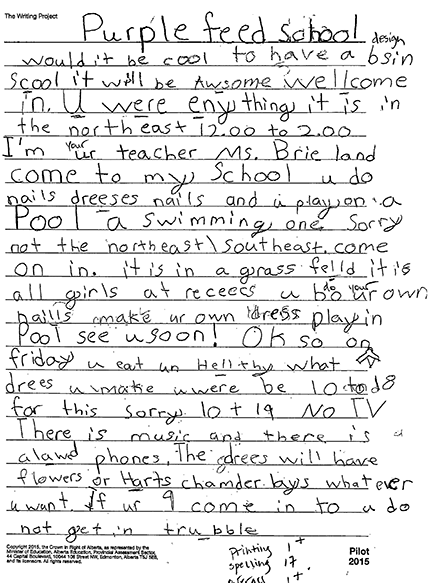 The Writing Project
Purple feed School
design
would it be cool to have a bsin
scool it will be Awsome wellcome
in. U were enything it is in
the northeast 12.00 to 2.00
I'm your ur teacher Ms. Brie land
come to my School u do
nails dreeses nails and u play on a
Pool a swimming one sorry
not the northeast\southeast. come
on in. it is in a grass feild it is
all girls at receees u do your own
naills make ur own dress play in
Pool see u soon! OK so on
friday u eat un Hellthy what
drees u make u were be 10 to 18
for this sorry 10 + 19 No TV
There is music and there is
alawd phones. The drees will have
flowers or Harts chamder lays what ever
u want. If ur 9 come in to u do
not get in trubble
Copyright 2015, the Crown in Right of Alberta, as represented by the
Minister of Education, Alberta Education, Provincial Assessment Sector,
44 Capital Boulevard, 10044 108 Street NW, Edmonton, Alberta T5J 5E6,
and its licensors. All rights reserved.
Pilot
2015
Printing 1+
spelling 17